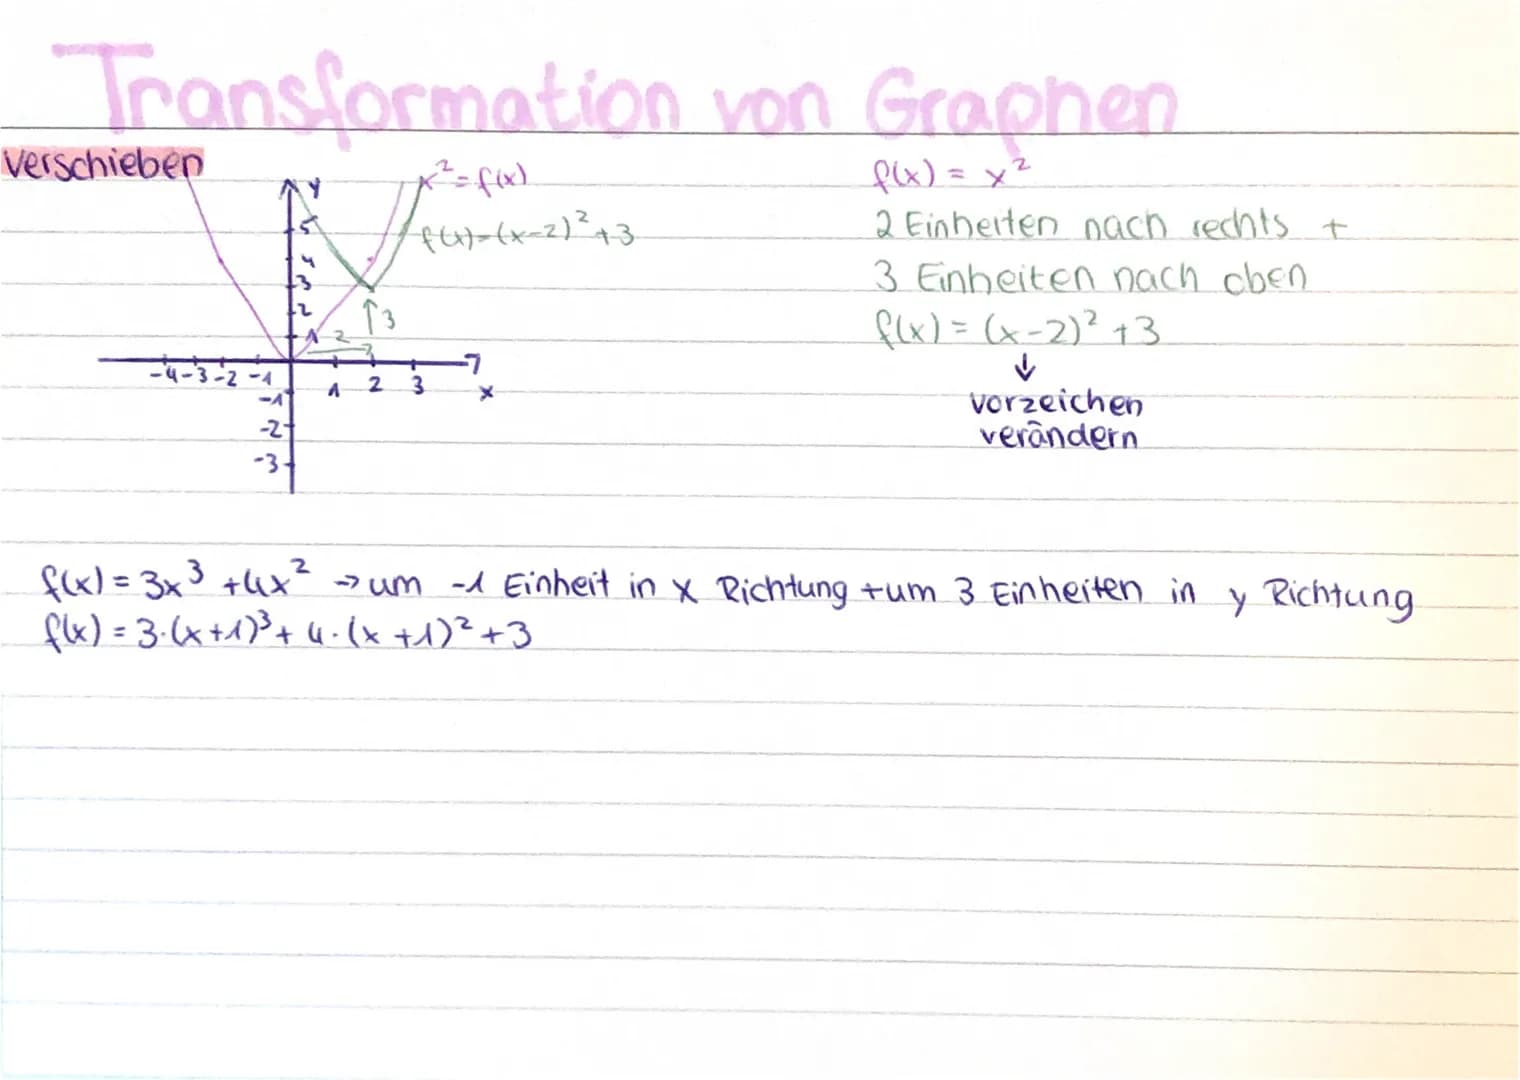 Transformation von Graphen
Verschieben
x² = f(x)
f(x)=(x-2)²+3
y
5
4
3
2
1
2
↑3
-4 -3 -2 -1
1 2 3
x
-1
-2
-3
f(x) = x²
2 Einheiten nach rechts +
3 Einheiten nach oben
f(x) = (x-2)² +3
↓
vorzeichen
verändern
f(x) = 3x³ +4x² → um -1 Einheit in x Richtung + um 3 Einheiten in y Richtung
f(x) = 3·(x+1)³ + 4·(x +1)² +3